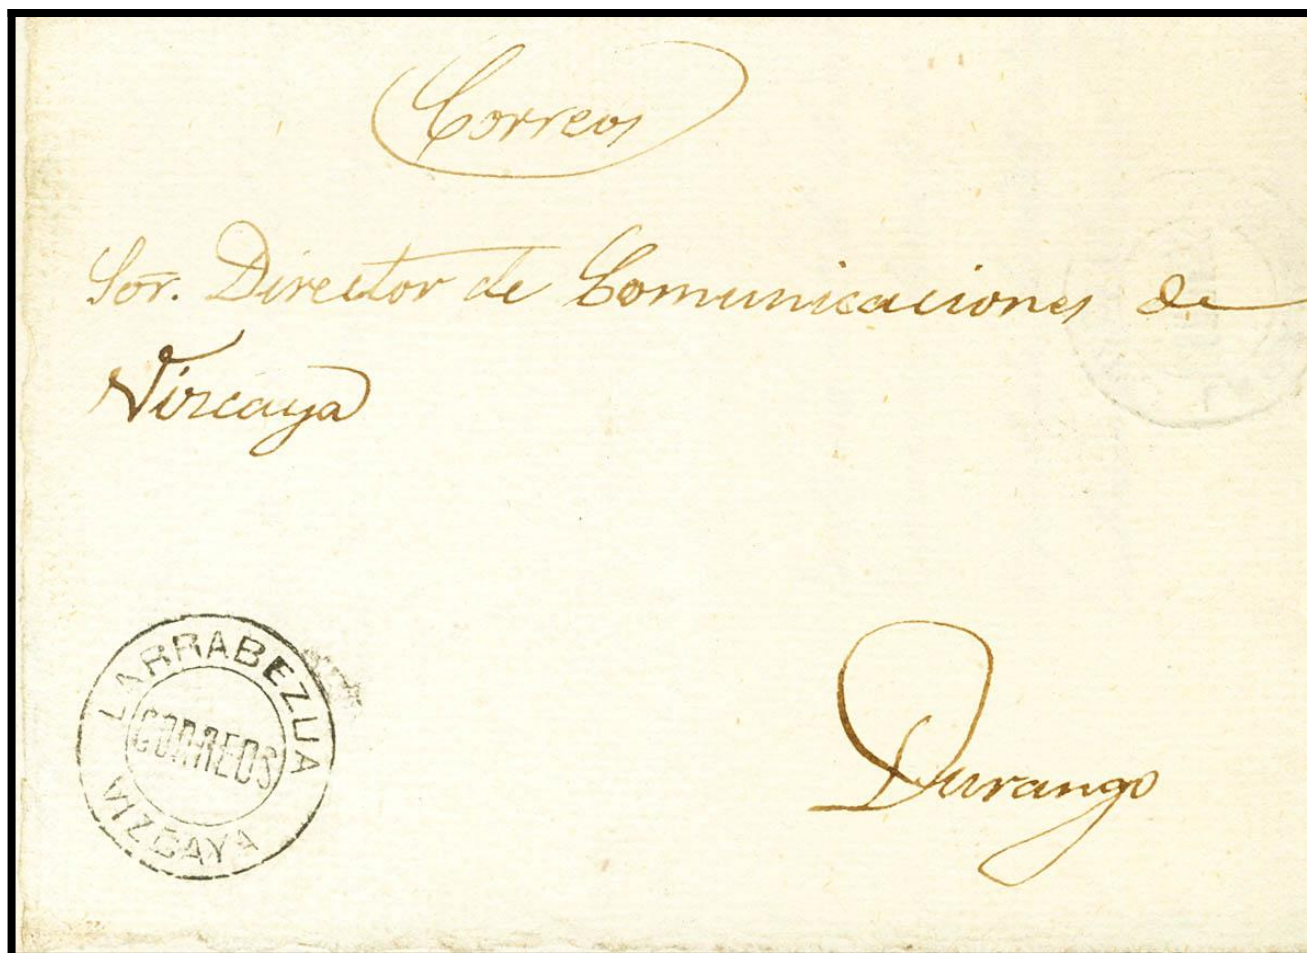 Correos
Sor. Director de Comunicaciones de
Vizcaya
LARRABEZUA
CORREOS
VIZCAYA
Durango